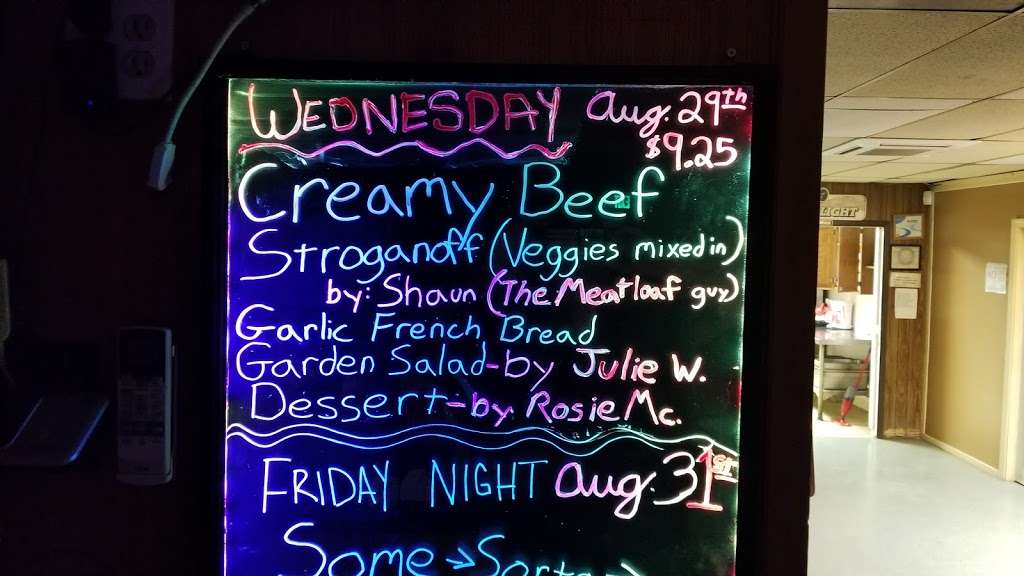 WEDNESDAY Aug. 29th
$9.25
Creamy Beef
Stroganoff (Veggies mixed in)
by: Shaun (The Meatloaf guy)
Garlic French Bread
Garden Salad-by Julie W.
Dessert-by Rosie Mc.
FRIDAY NIGHT Aug. 31st
Some → Sorta →
LIGHT